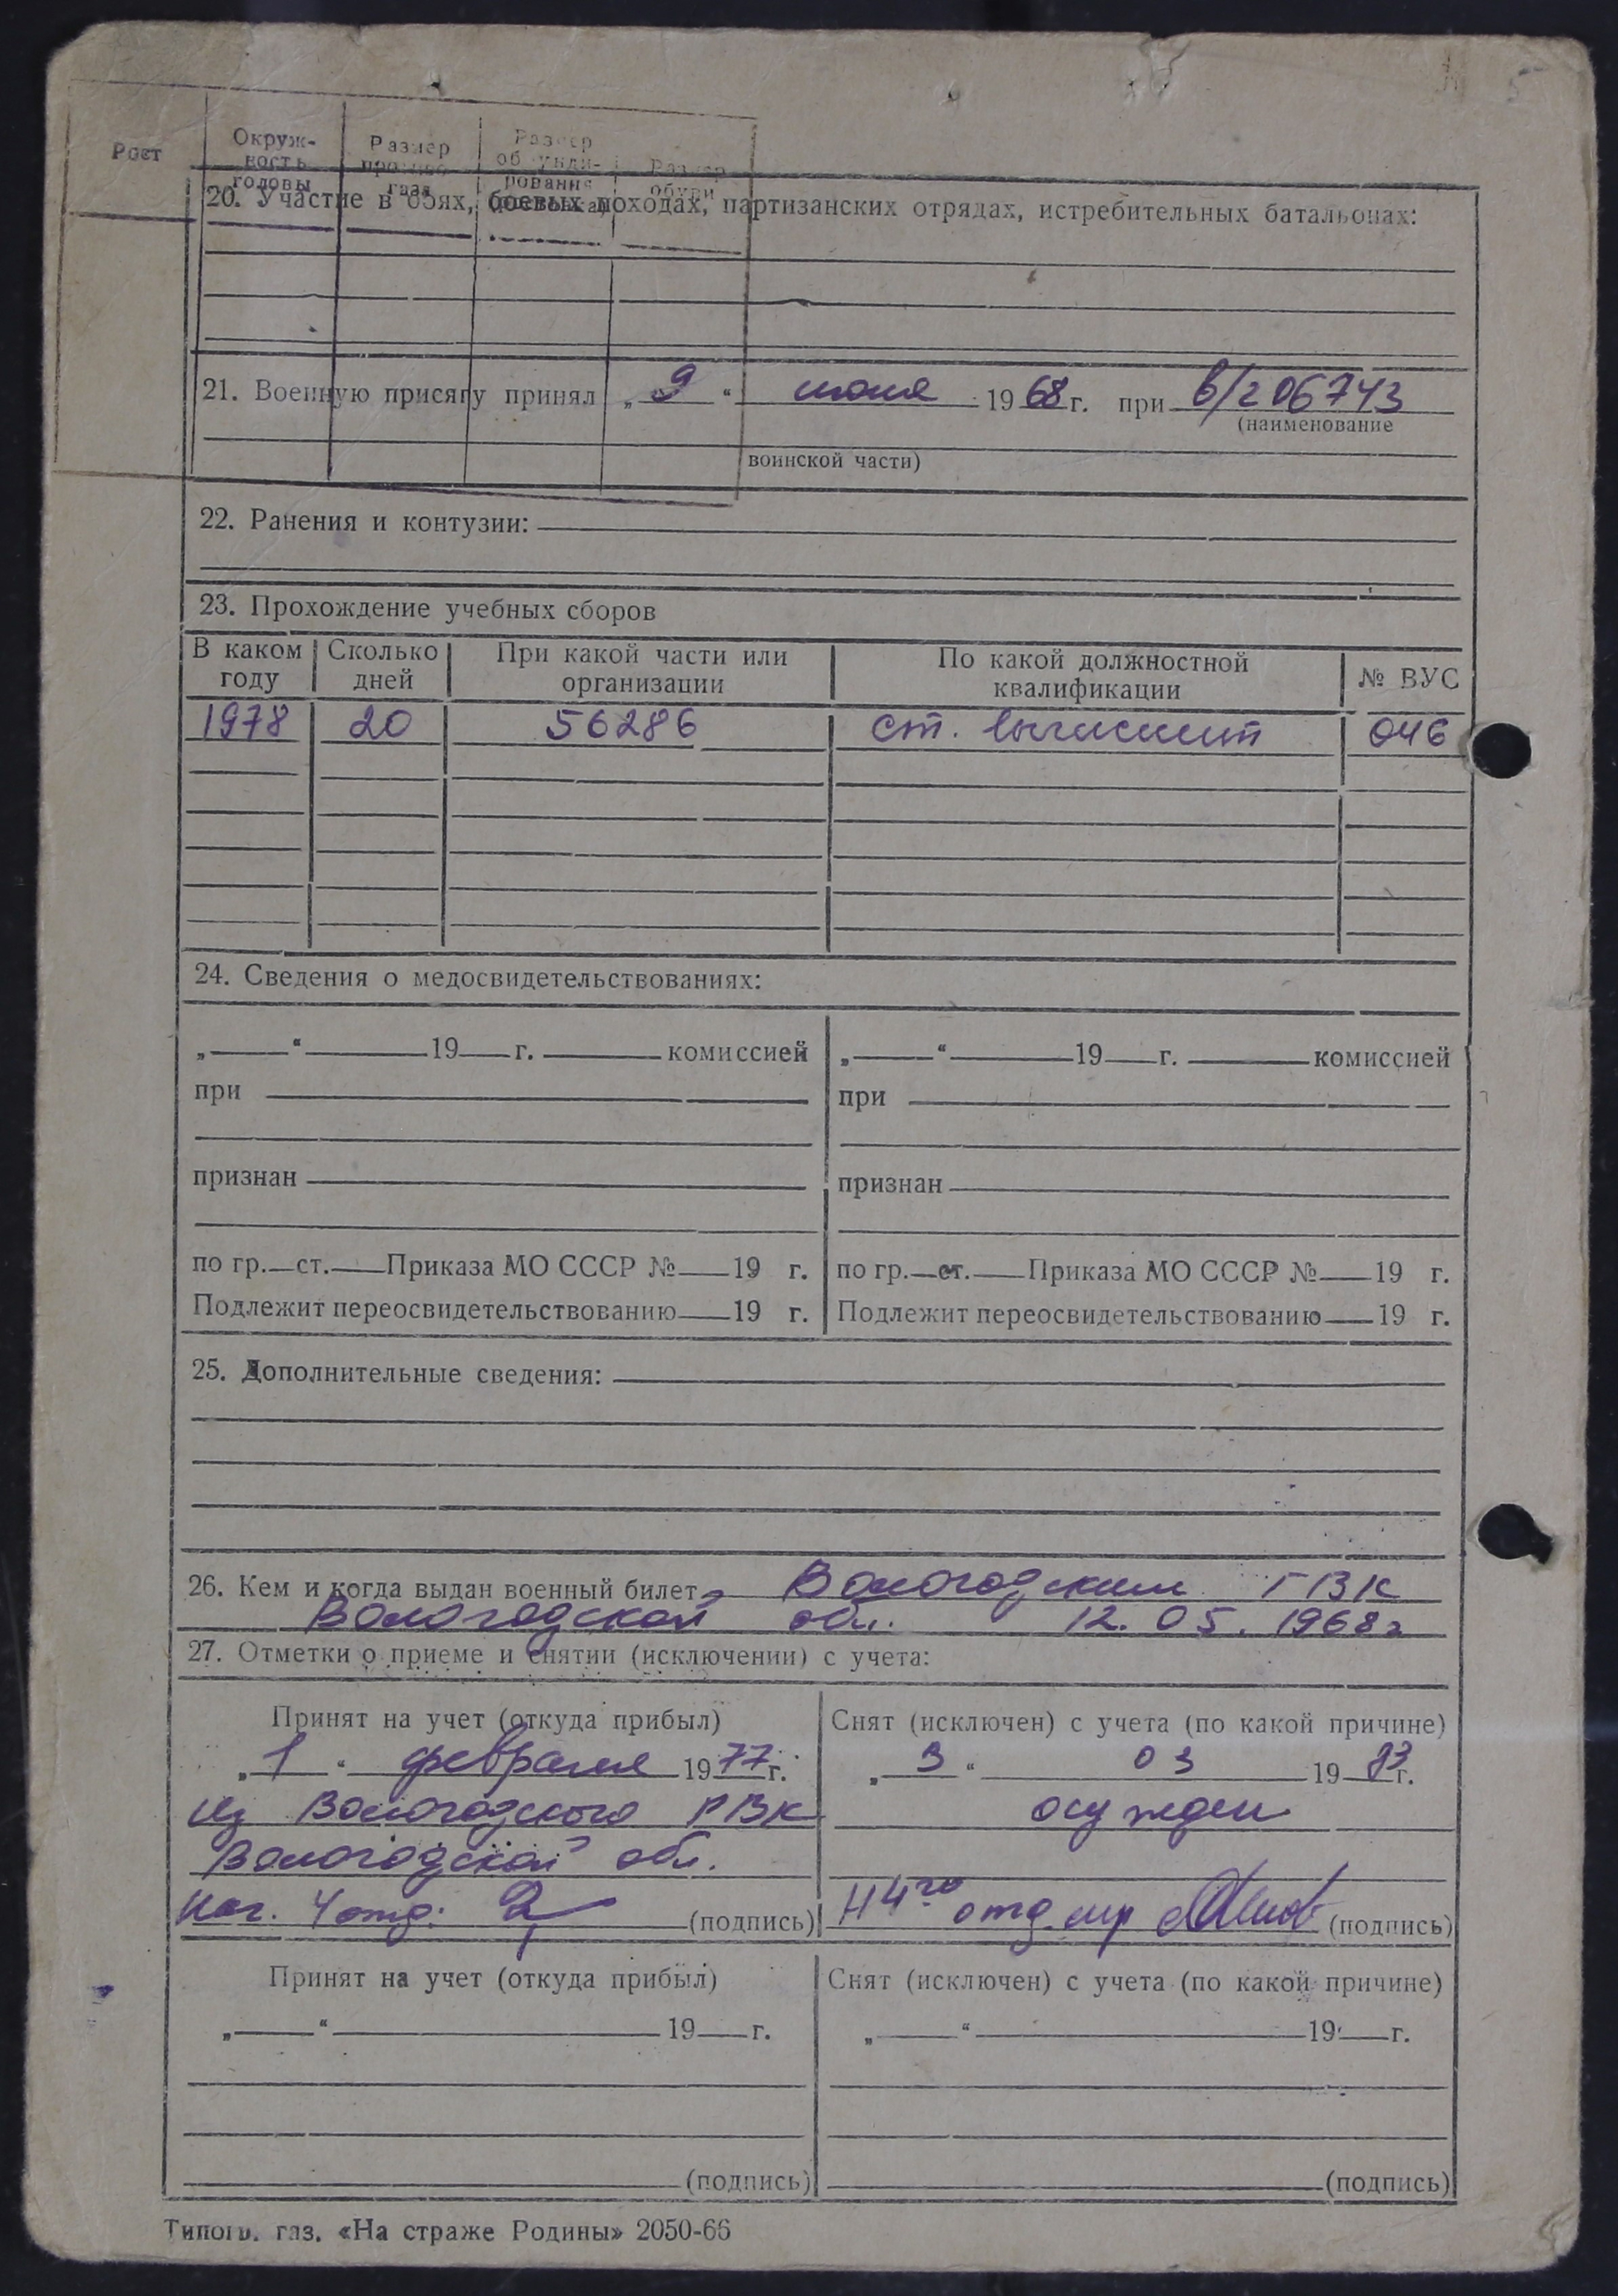 Рост
Окруж-
ность
головы
Размер
противо-
газа
Размер
обмунди-
рования
Размер
обуви
20. Участие в боях, боевых походах, партизанских отрядах, истребительных батальонах:
21. Военную присягу принял „ 9 “ июня 1968 г. при в/г 06743
(наименование
воинской части)
22. Ранения и контузии:
23. Прохождение учебных сборов
В каком году Сколько дней При какой части или организации По какой должностной квалификации № ВУС
1978 20 56286 ст. вычислит 046
24. Сведения о медосвидетельствованиях:
„ “ 19 г. комиссией „ “ 19 г. комиссией
при при
признан признан
по гр. ст. Приказа МО СССР № 19 г. по гр. ст. Приказа МО СССР № 19 г.
Подлежит переосвидетельствованию 19 г. Подлежит переосвидетельствованию 19 г.
25. Дополнительные сведения:
26. Кем и когда выдан военный билет Вологодским ГВК
Вологодской обл. 12.05.1968г
27. Отметки о приеме и снятии (исключении) с учета:
Принят на учет (откуда прибыл) Снят (исключен) с учета (по какой причине)
„ 1 “ февраля 1977 г. „ 3 “ 03 1983 г.
из Вологодского РВК осужден
Вологодской обл.
Нач. 4 отд. (подпись) Н 4го отд. (подпись)
Принят на учет (откуда прибыл) Снят (исключен) с учета (по какой причине)
„ “ 19 г. „ “ 19 г.
(подпись) (подпись)
Типогр. газ. «На страже Родины» 2050-66